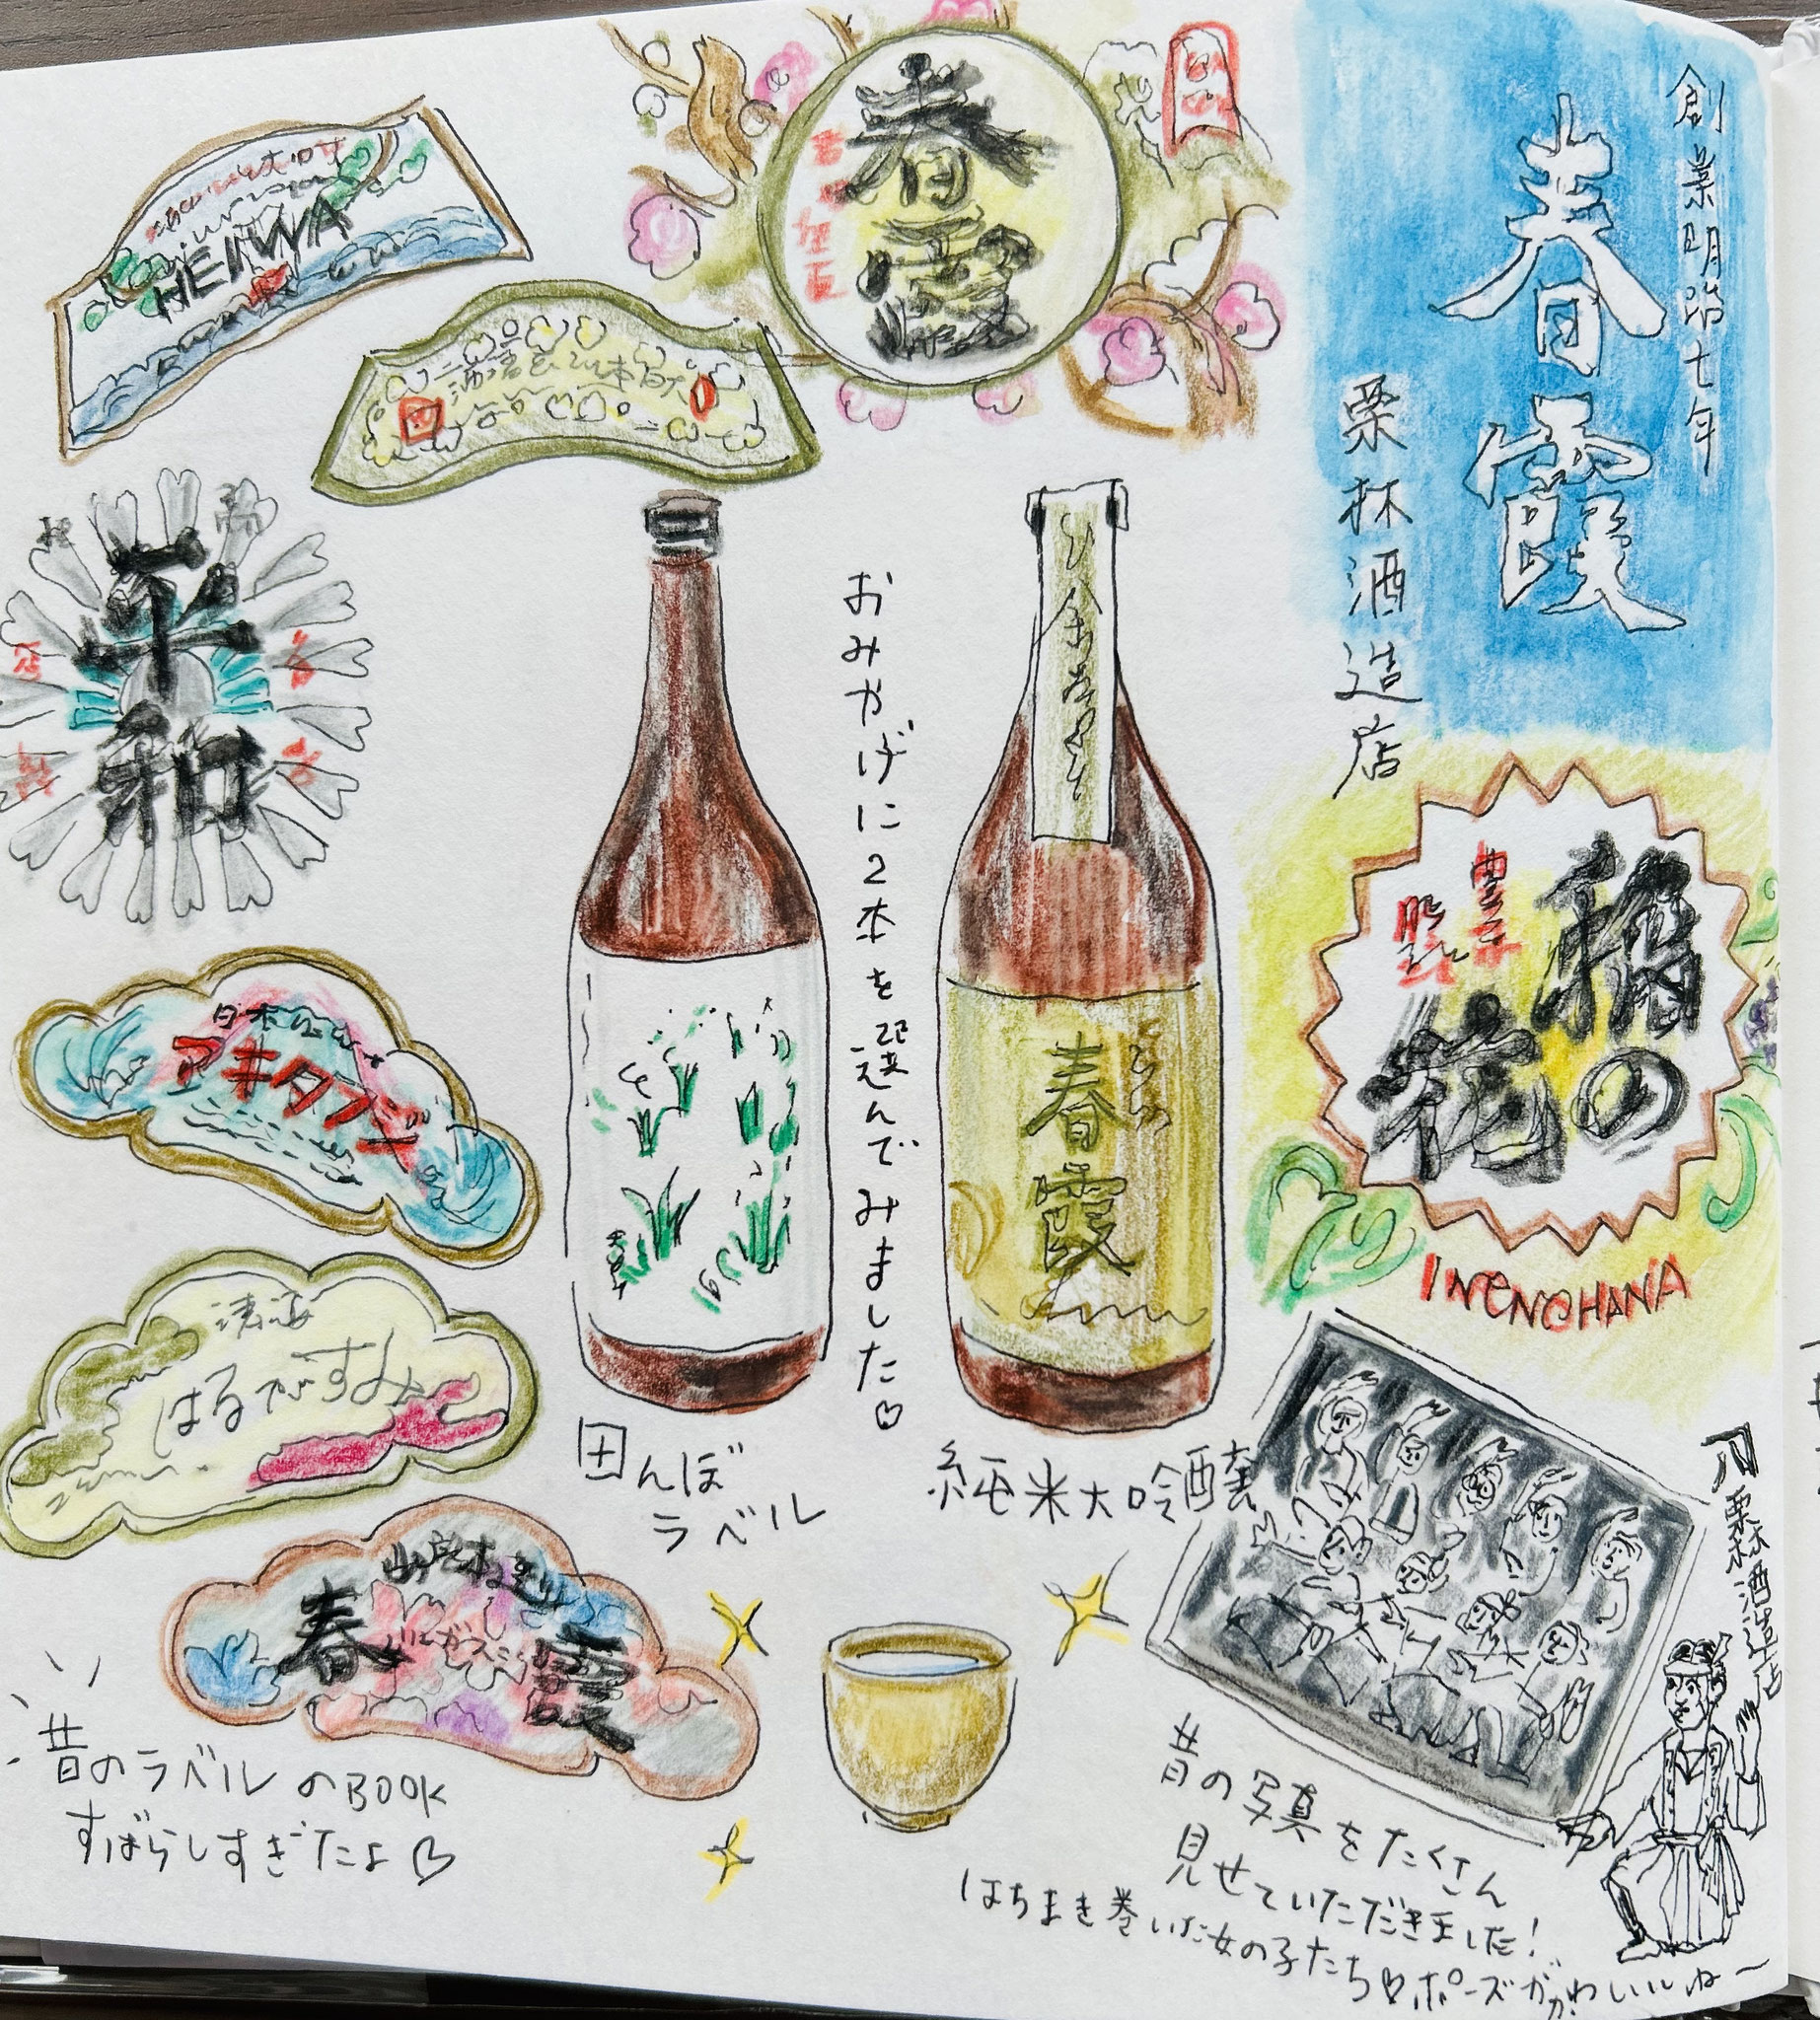 創業明治七年
春霞
栗林酒造店
春霞
HEIWA
平和
日本
アキタフジ
清酒
はるがすみ
春霞
昔のラベルのBOOK
すばらしすぎたよ♡
おみやげに2本を選んでみました♡
田んぼ
ラベル
春霞
純米大吟醸
稲の花
INENOHANA
栗林酒造店
昔の写真をたくさん
見せていただきました!
はちまき巻いた女の子たち♡ポーズがかわいいね〜